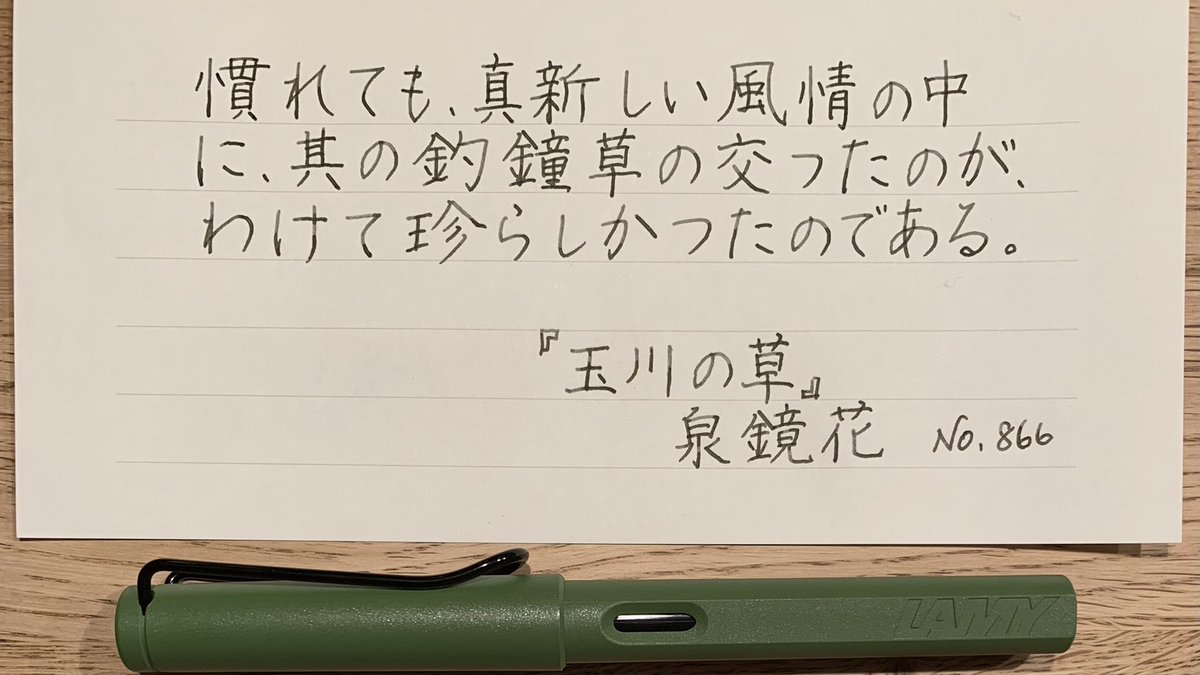 慣れても、真新しい風情の中
に、其の釣鐘草の交つたのが、
わけて珍らしかつたのである。
『玉川の草』
泉鏡花 No.866
LAMY